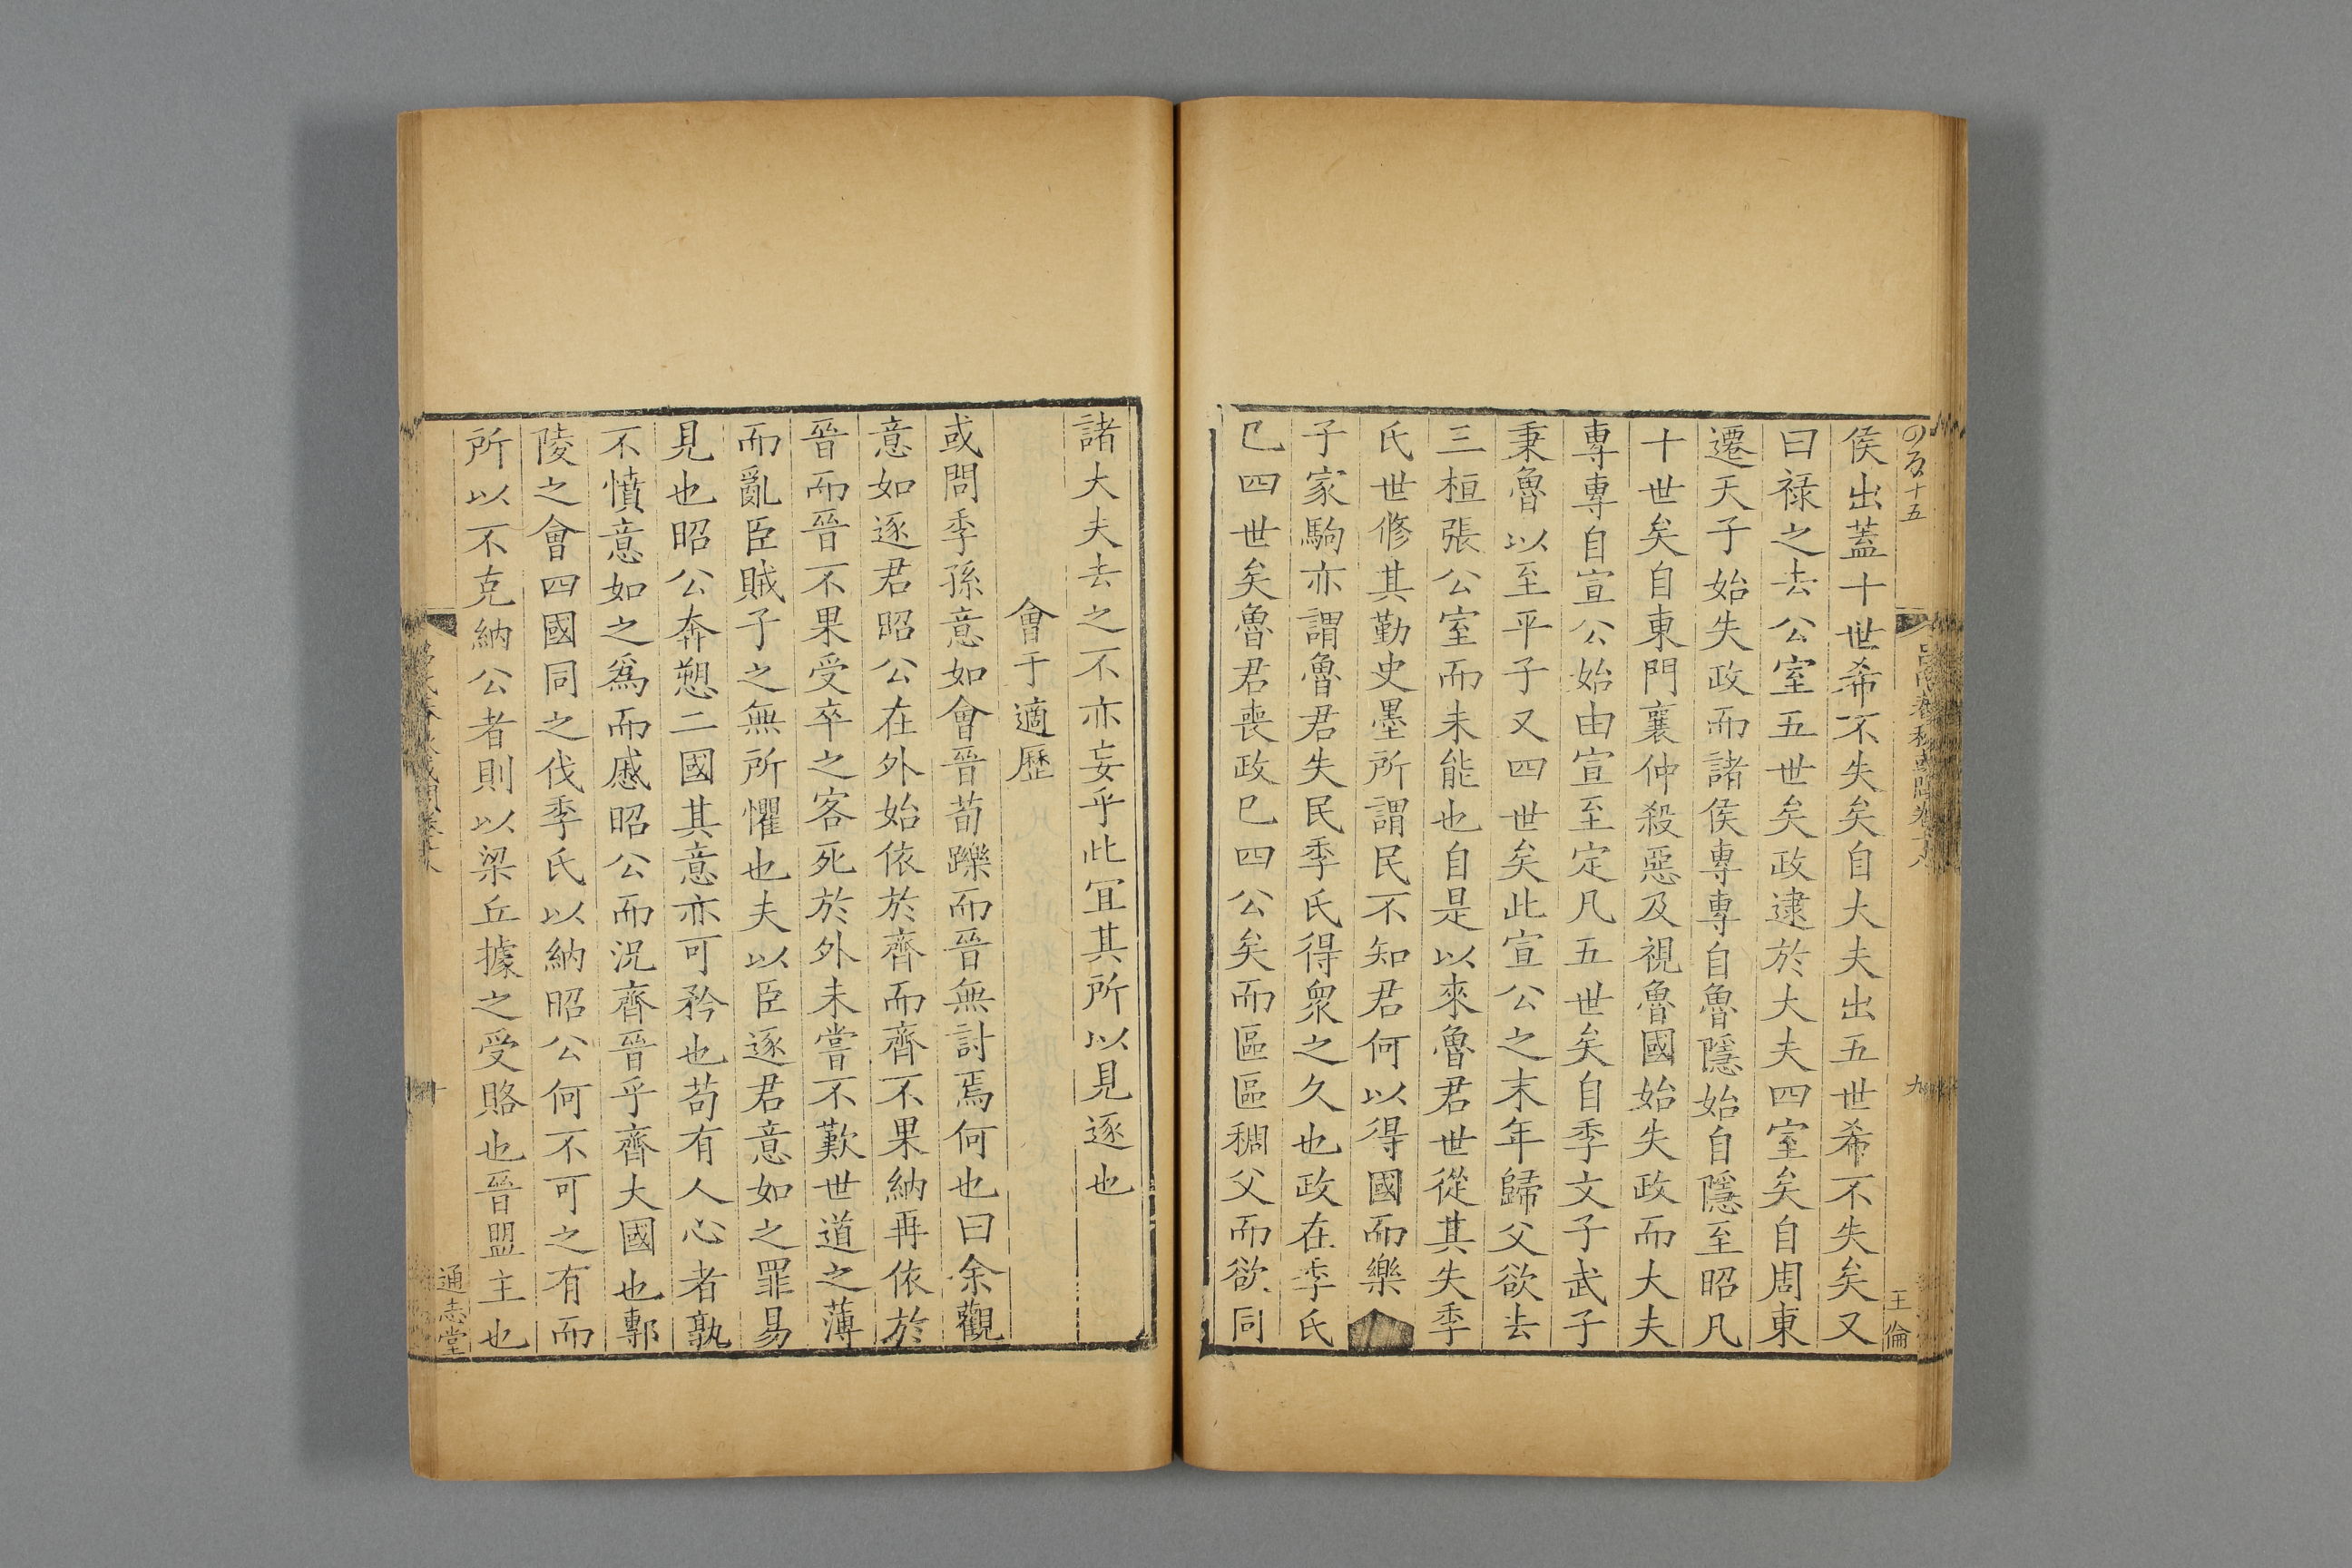 侯出蓋十世希不失矣自大夫出五世希不失矣又
曰祿之去公室五世矣政逮於大夫四室矣自周東
遷天子始失政而諸侯專專自魯隱始自隱至昭凡
十世矣自東門襄仲殺惡及視魯國始失政而大夫
專專自宣公始由宣至定凡五世矣自季文子武子
秉魯以至平子又四世矣此宣公之末年歸父欲去
三桓張公室而未能也自是以來魯君世從其失季
氏世修其勤史墨所謂民不知君何以得國而樂
子家駒亦謂魯君失民季氏得衆之久也政在季氏
已四世矣魯君喪政已四公矣而區區稠父而欲同
諸大夫去之不亦妄乎此宜其所以見逐也
會于適歷
或問季孫意如會晉荀躒而晉無討焉何也曰余觀
意如逐君昭公在外始依於齊而齊不果納再依於
晉而晉不果受卒之客死於外未嘗不歎世道之薄
而亂臣賊子之無所懼也夫以臣逐君意如之罪易
見也昭公奔愬二國其意亦可矜也苟有人心者孰
不憤意如之爲而慼昭公而況齊晉乎齊大國也鄟
陵之會四國同之伐季氏以納昭公何不可之有而
所以不克納公者則以梁丘據之受賂也晉盟主也
十五
呂氏春秋或問卷十八
九
王倫
呂氏春秋或問卷十八
十
通志堂